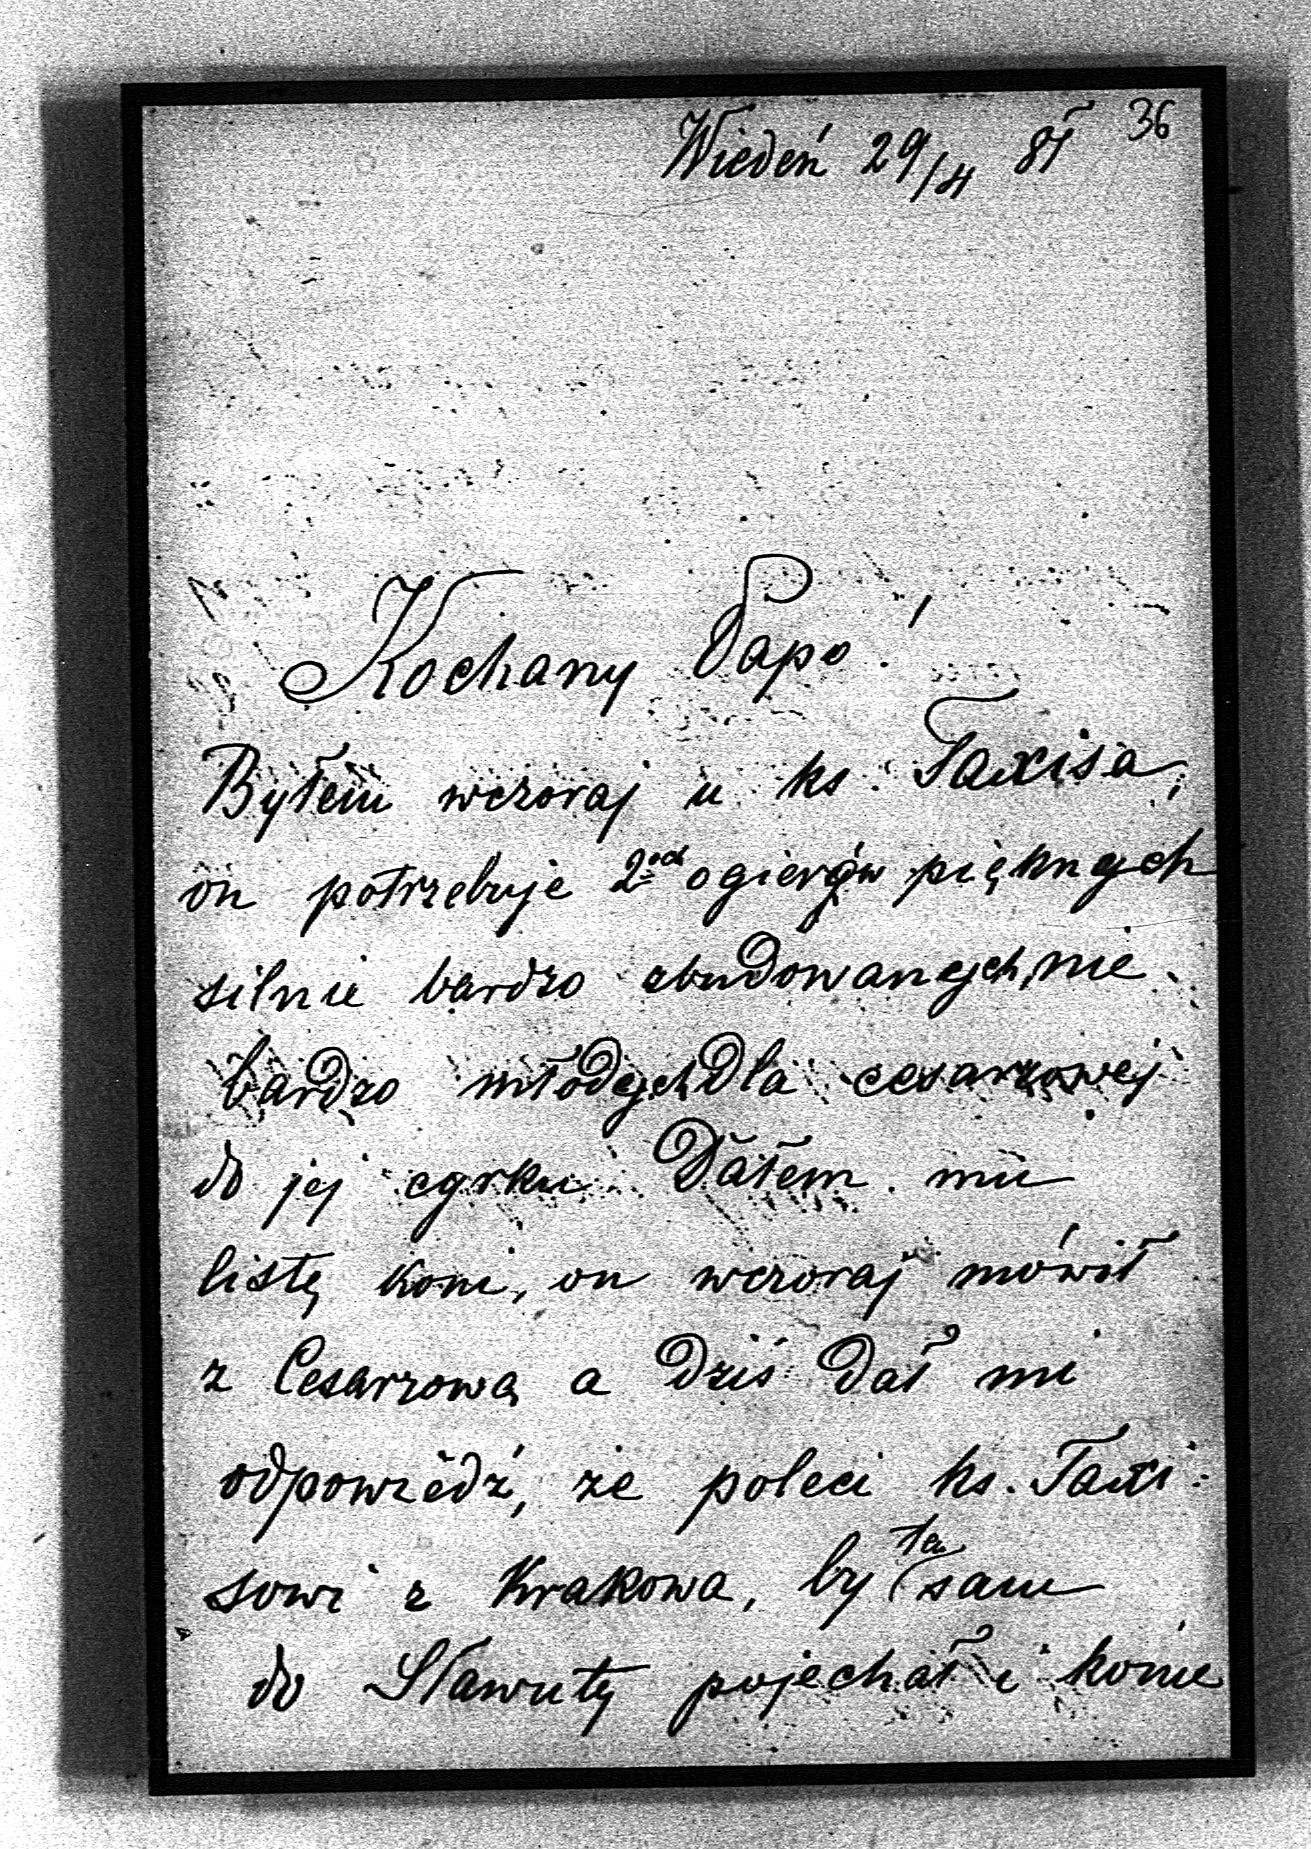 Wiedeń 29/4 81 36
Kochany Papo!
Byłem wczoraj u ks. Taxisa,
on potrzebuje 2och ogierów pięknych
silnie bardzo zbudowanych, nie
bardzo młodych dla cesarzowej
do jej cyrku. Dałem mu
listę koni, on wczoraj mówił
z Cesarzową a dziś dał mi
odpowiedź, że poleci ks. Taxi-
sowi z Krakowa, by ta sam
do Sławuty pojechał i konie